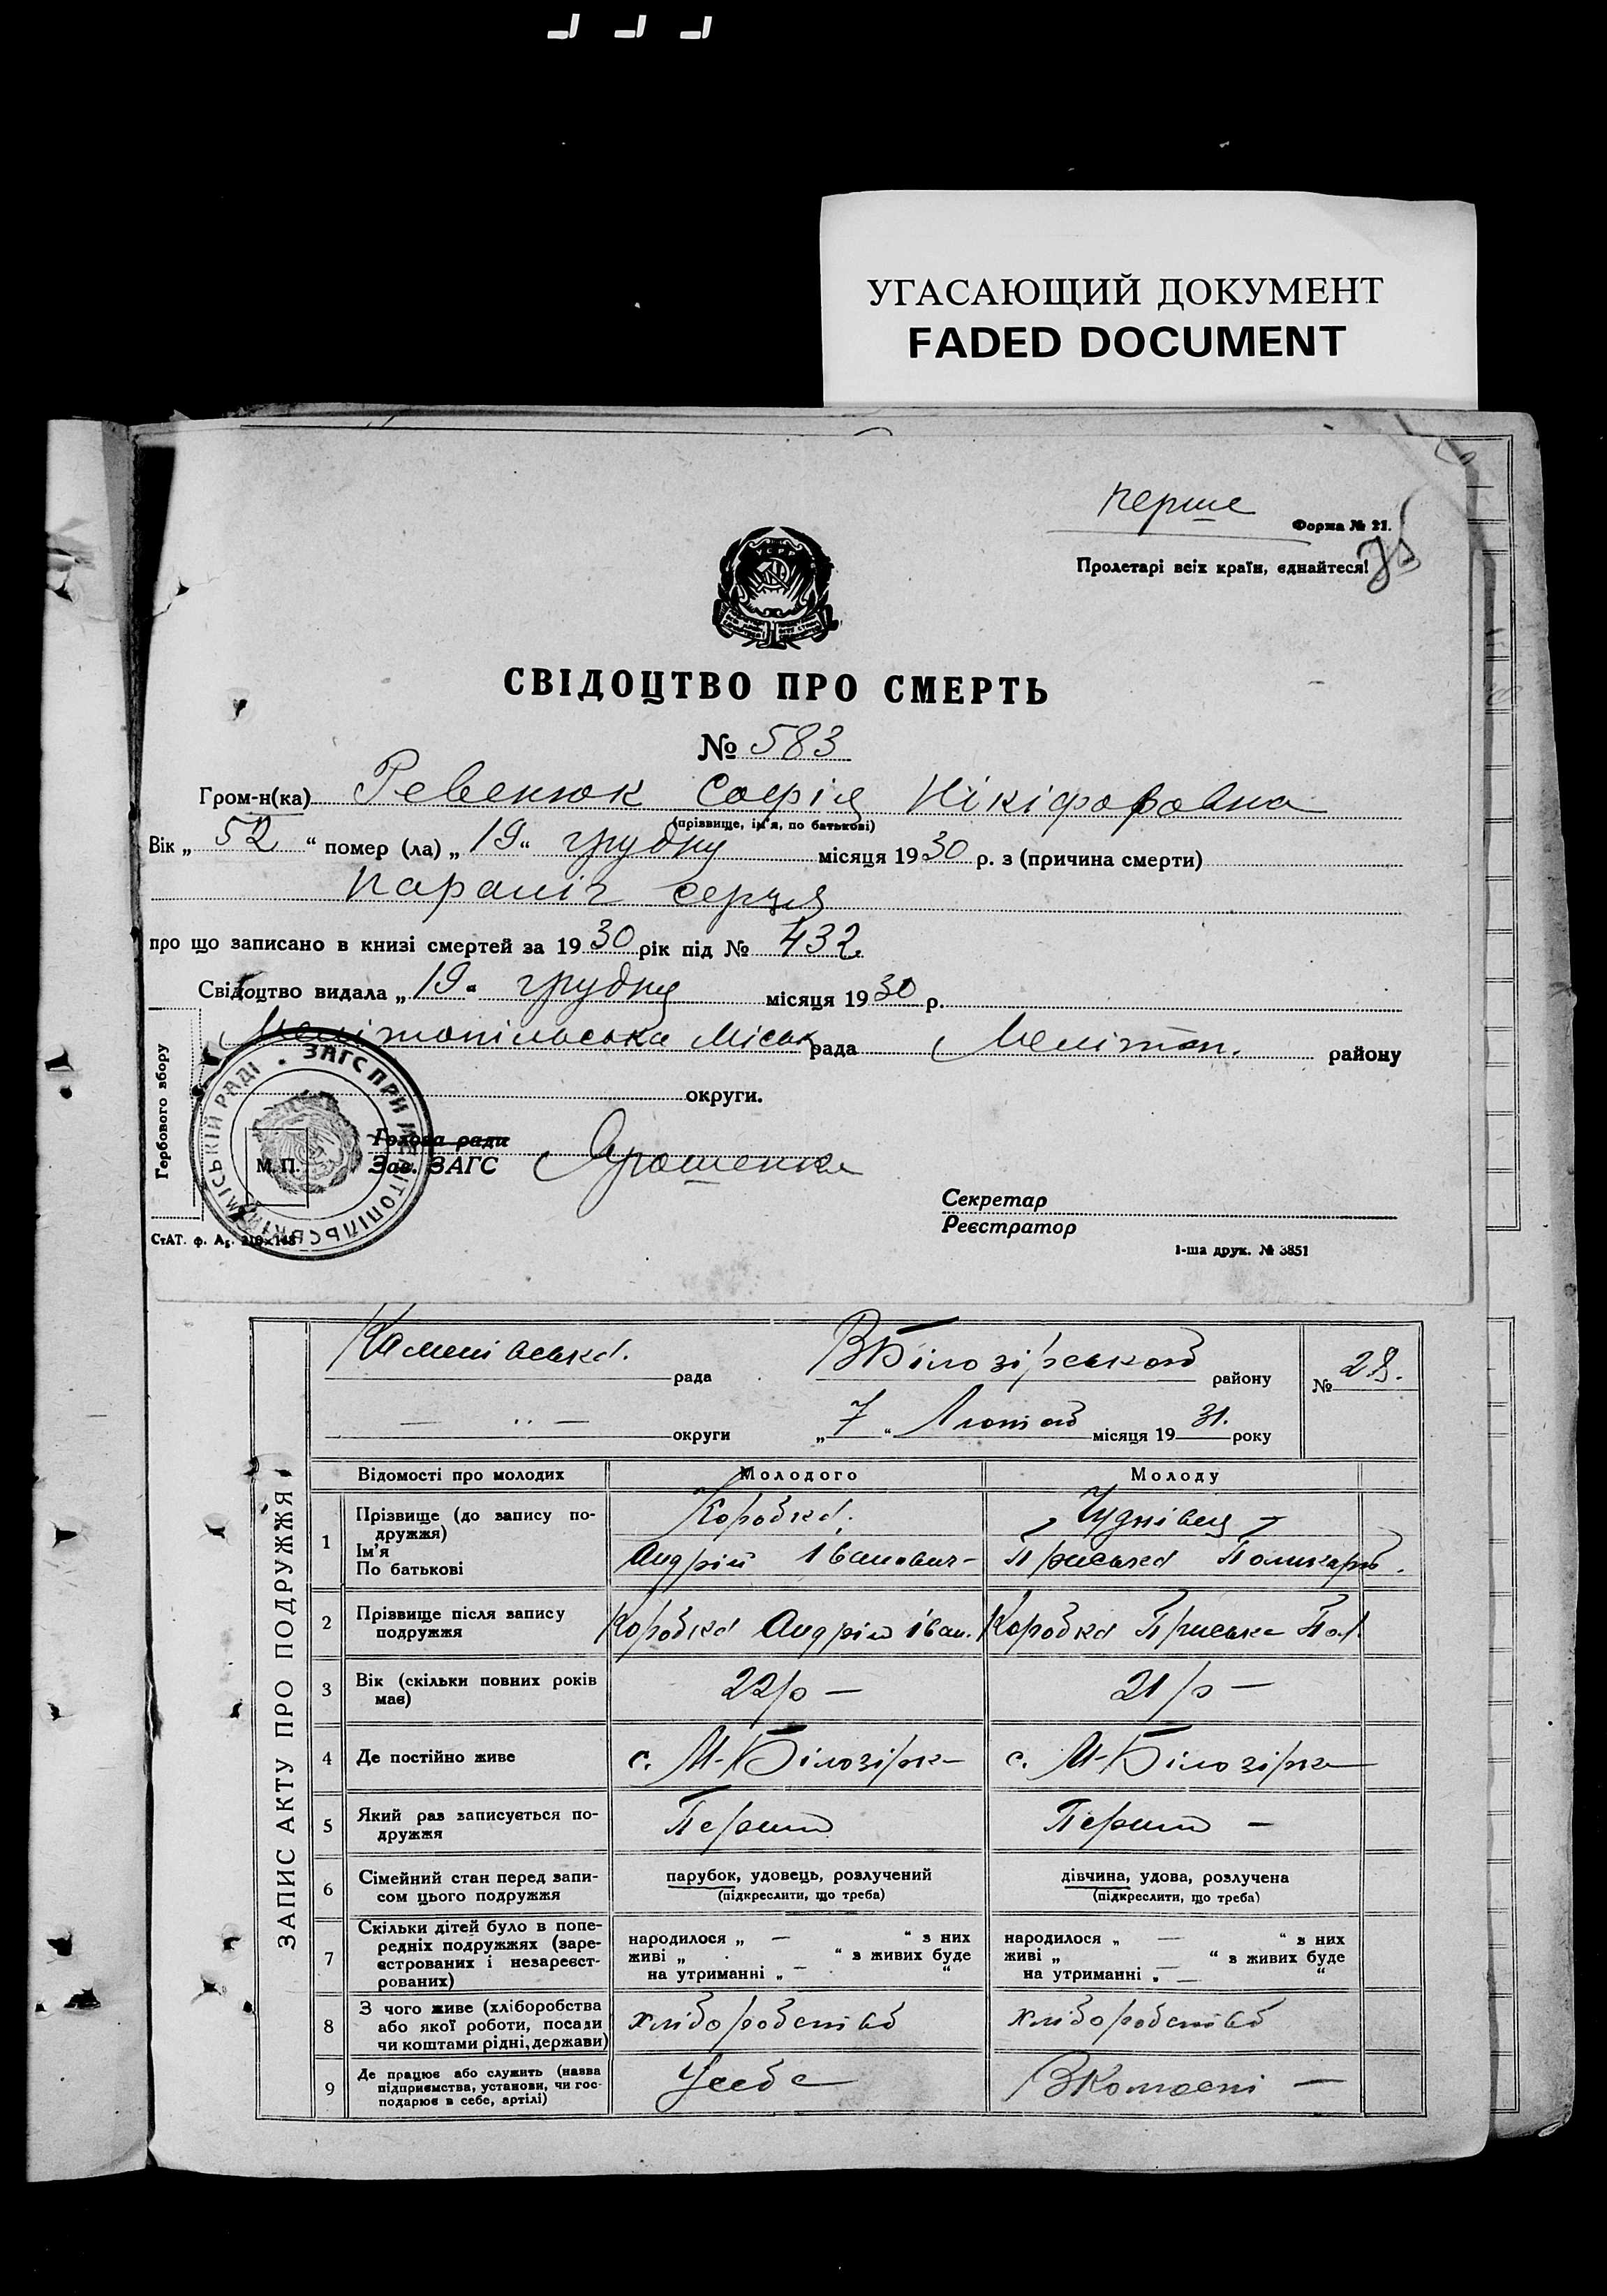 УГАСАЮЩИЙ ДОКУМЕНТ
FADED DOCUMENT
перше
Форма № 21.
Пролетарі всіх країн, єднайтеся!
УСРР
СВІДОЦТВО ПРО СМЕРТЬ
№ 583
Гром-н(ка) Ревенюк Софія Нікіфоровна
(прізвище, ім'я, по батькові)
Вік „ 52 “ помер (ла) „ 19 “ грудня місяця 1930 р. з (причина смерти)
параліч серця
про що записано в книзі смертей за 1930 рік під № 432.
Свідоцтво видала „ 19 “ грудня місяця 1930 р.
Мелітопільська Міськ рада Мелітоп. району
округи.
Гербового збору
ЗАГС ПРИ МЕЛІТОПІЛЬСЬКІЙ МІСЬКІЙ РАДІ
М. П.
Голова ради
Зав. ЗАГС Ярошенко
Секретар
Реєстратор
СтАТ. ф. А5. 210×148
1-ша друк. № 3851
ЗАПИС АКТУ ПРО ПОДРУЖЖЯ
рада ВБілозірськой району № 28.
округи „ 7 “ Лютой місяця 1931. року
Відомості про молодих Молодого Молоду
1 Прізвище (до запису подружжя) Коробка
Ім'я
По батькові Андрій Іванович Приська
2 Прізвище після запису подружжя Коробка Андрій Іван. Коробка Приська Пол.
3 Вік (скільки повних років має) 22 р – 21 р –
4 Де постійно живе с. М-Білозірка с. М-Білозірка
5 Який раз записується подружжя Перший Перший –
6 Сімейний стан перед записом цього подружжя парубок, удовець, розлучений дівчина, удова, розлучена
(підкреслити, що треба) (підкреслити, що треба)
7 Скільки дітей було в попередніх подружжях (зареєстрованих і незареєстрованих) народилося „ — “ з них народилося „ — “ з них
живі „ “ з живих буде живі „ “ з живих буде
на утриманні „ — “ на утриманні „ — “
8 З чого живе (хліборобства або якої роботи, посади чи коштами рідні, держави) хліборобства хліборобства
9 Де працює або служить (назва підприємства, установи, чи господарює в себе, артілі) У себе